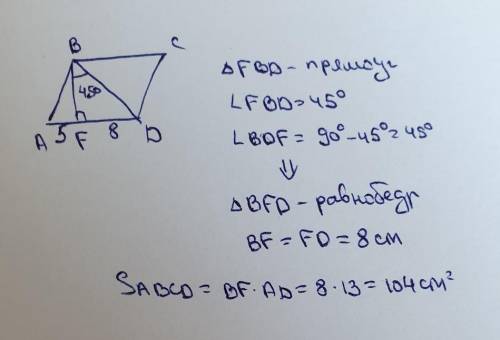 B
C
45°
A 5 F 8 D
△FBD – прямоуг
∠FBD = 45°
∠BDF = 90° – 45° = 45°
⇓
△BFD – равнобедр
BF = FD = 8 см
SABCD = BF · AD = 8 · 13 = 104 см²